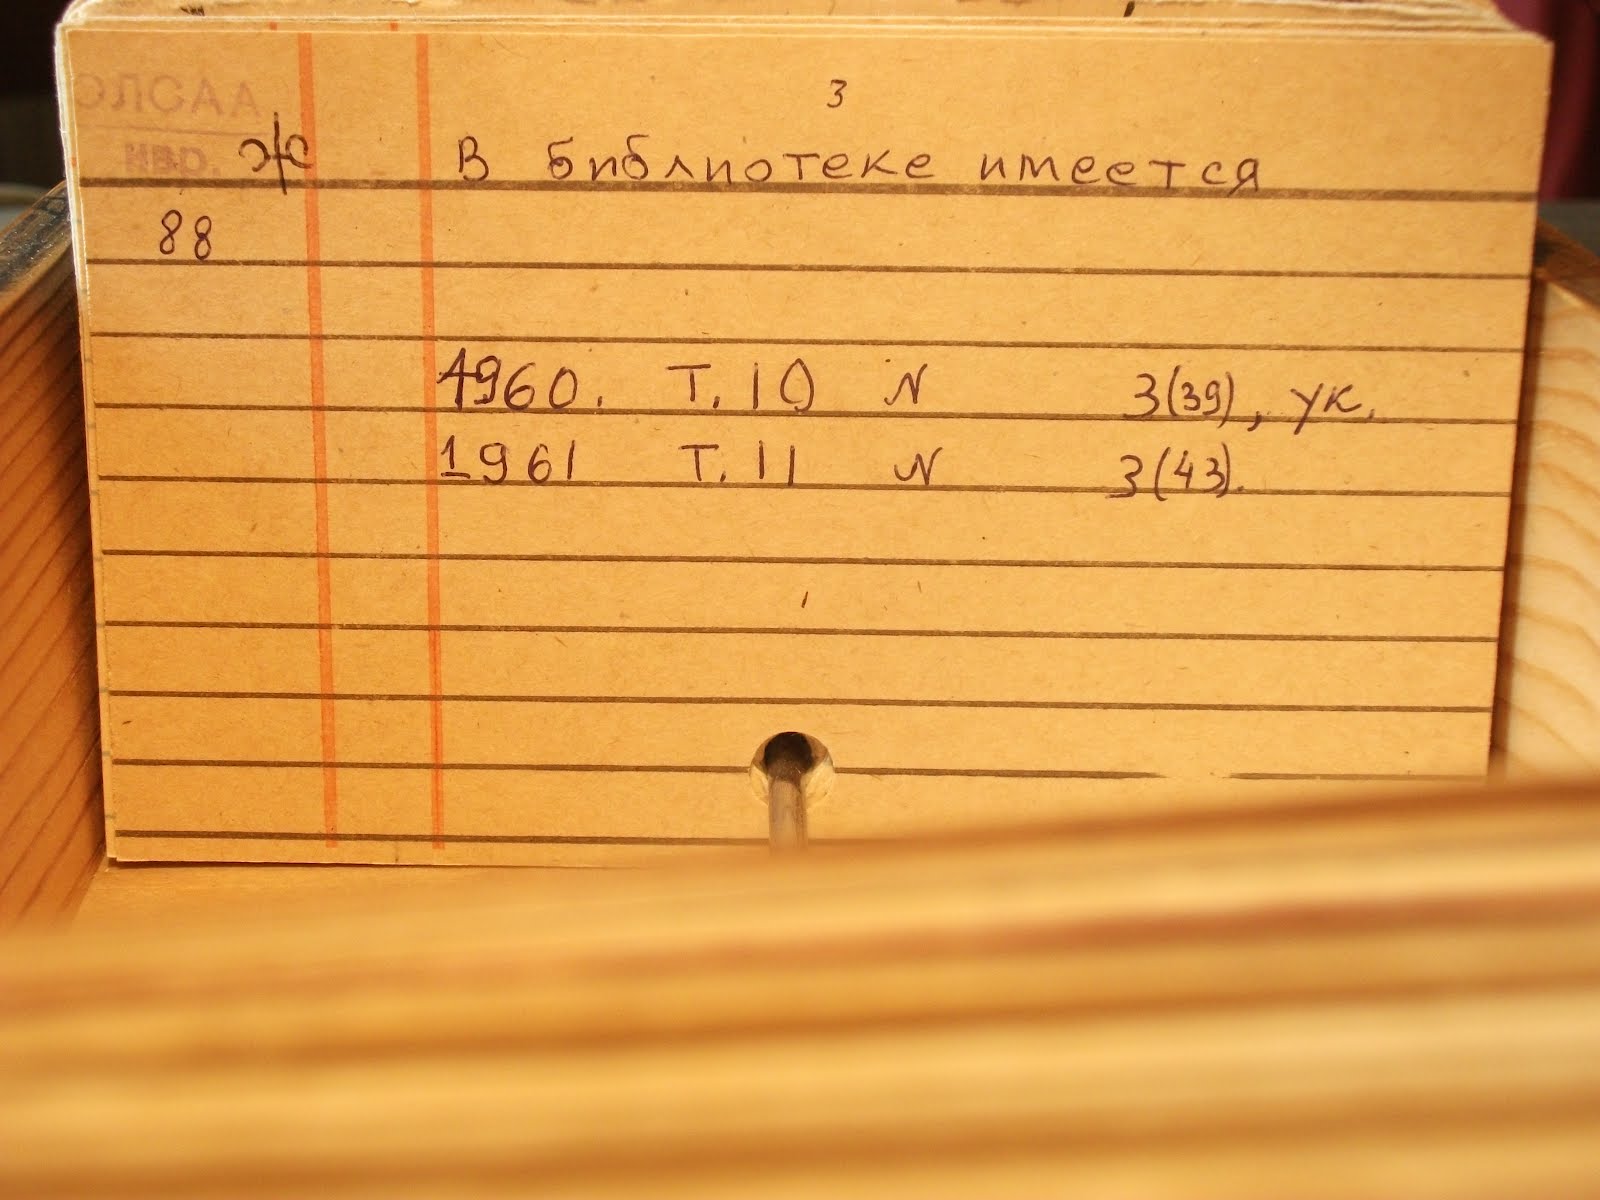 3
ЭЛСАА
инр. Ж В библиотеке имеется
88
1960. Т.10 N 3(39), ук.
1961 Т.11 N 3(43).